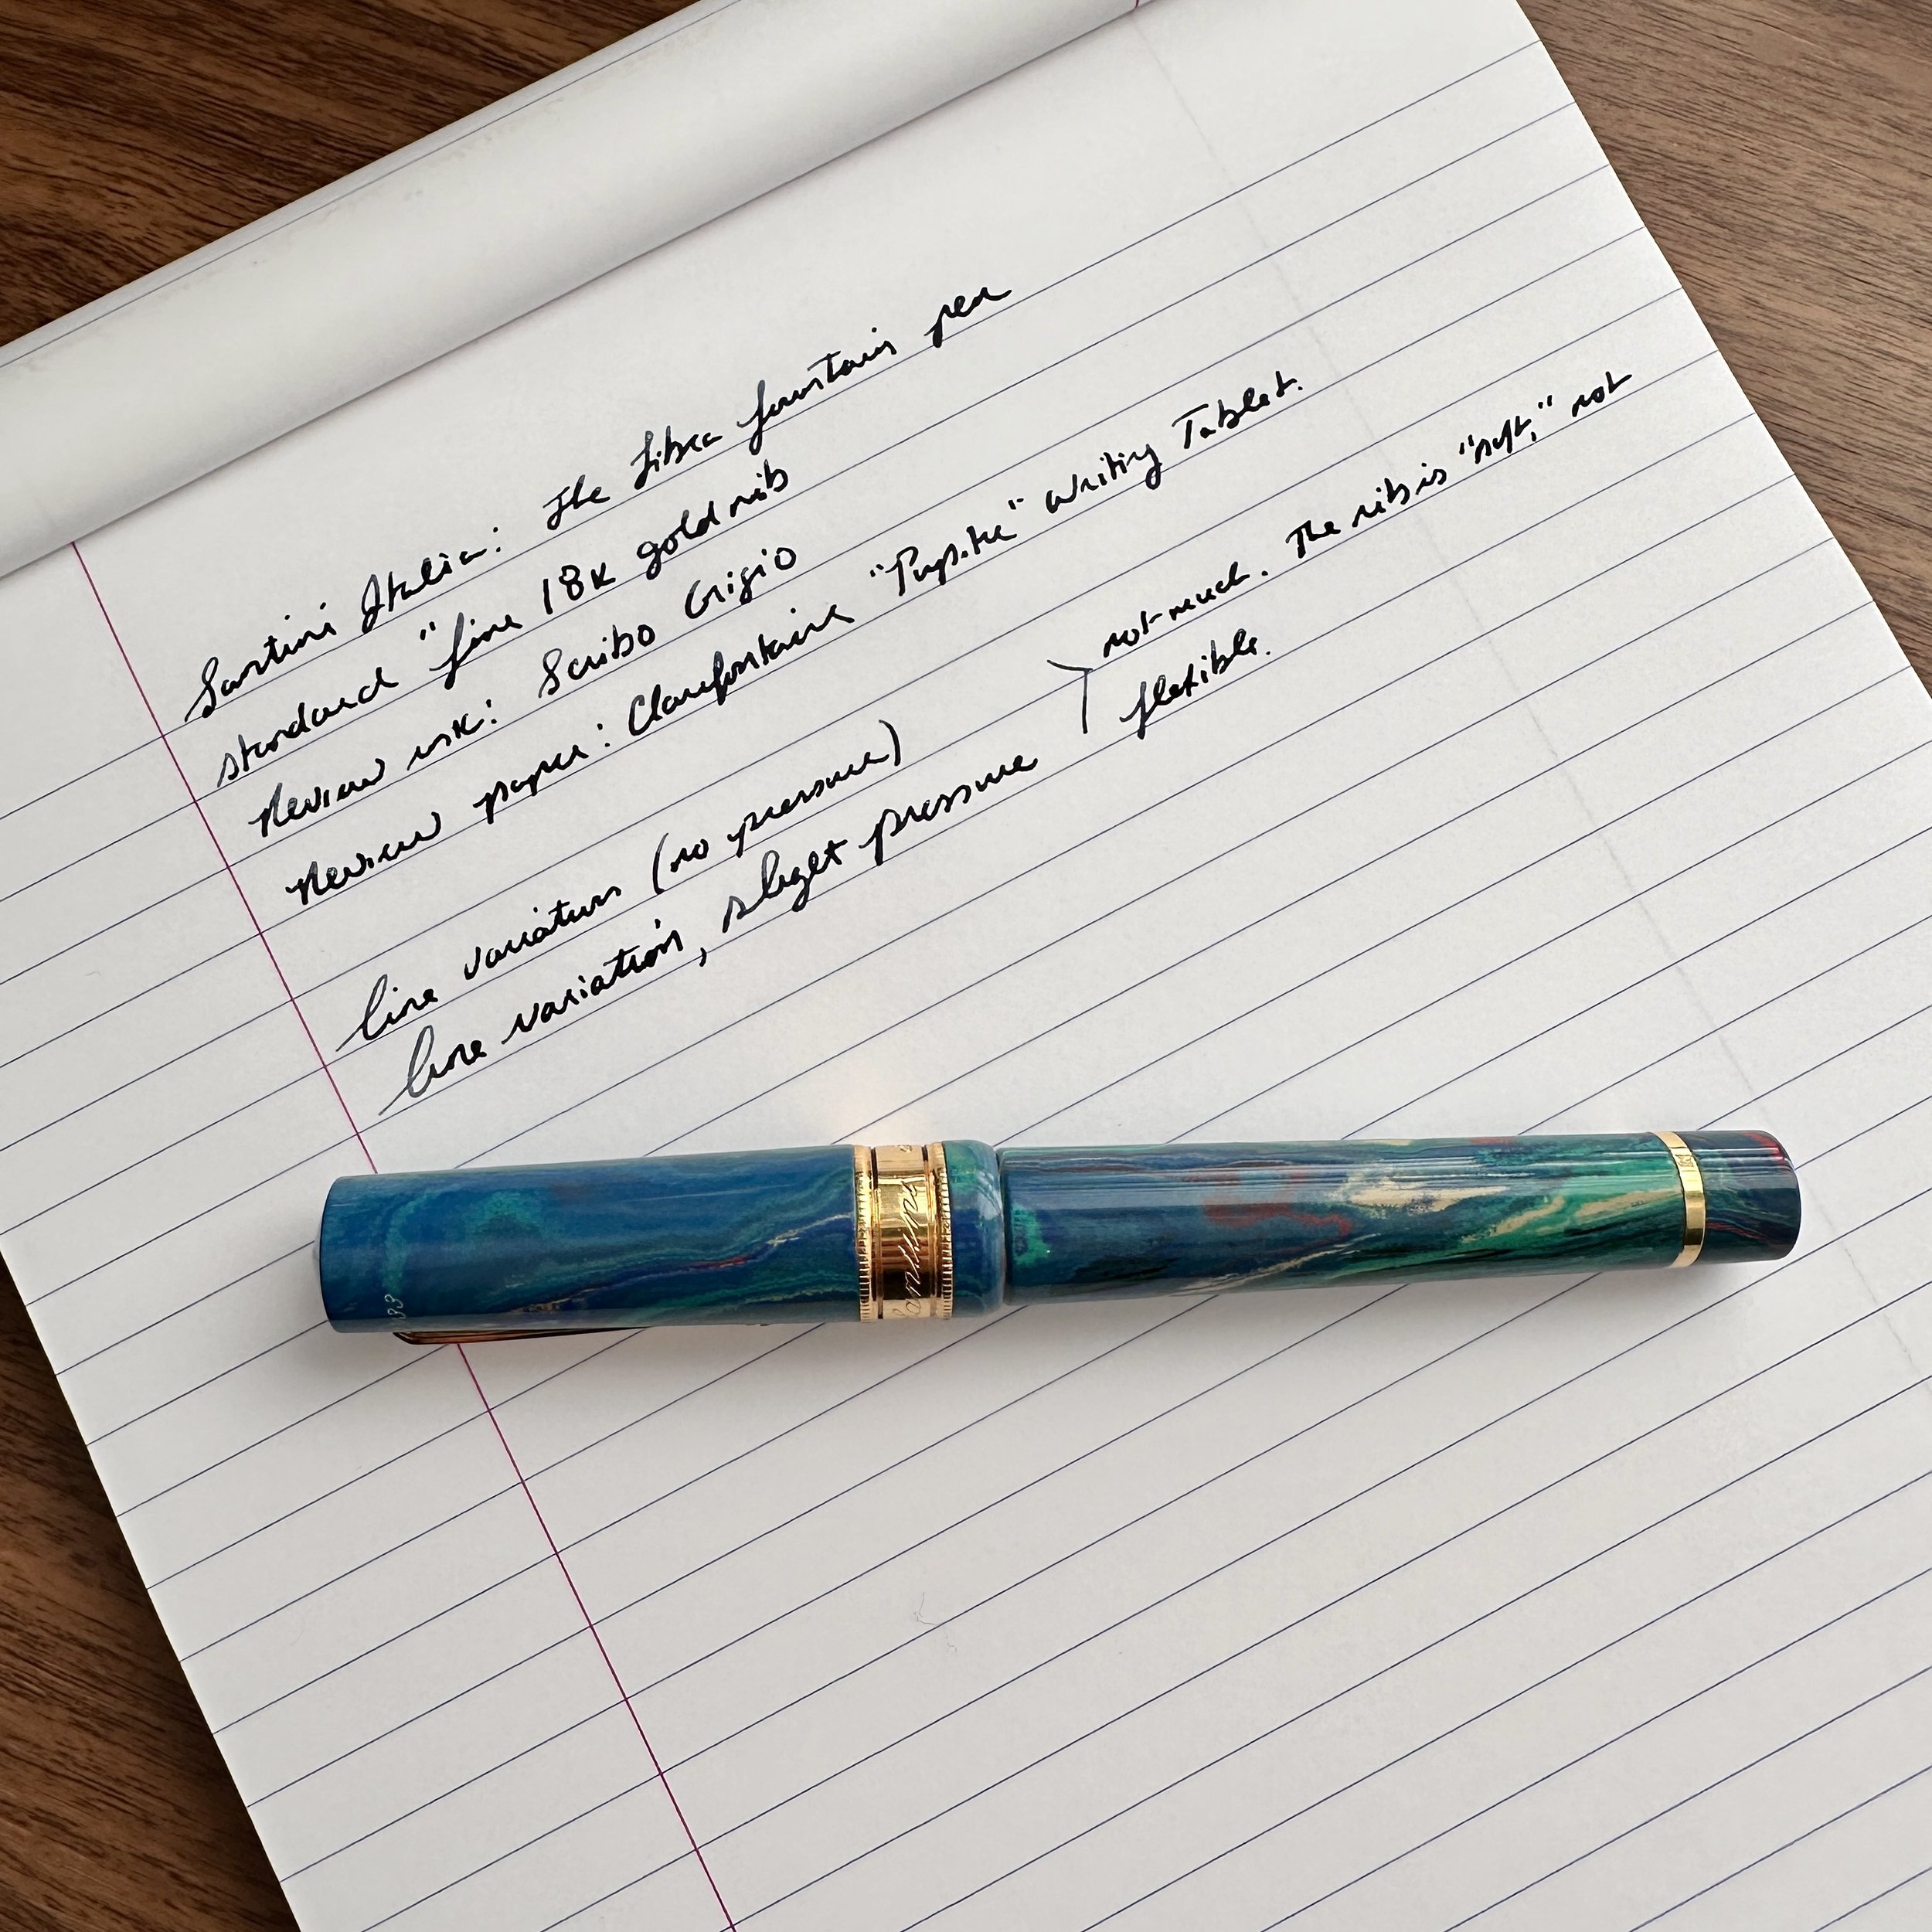 Santini Italia: The Libra fountain pen
standard "fine 18K gold nib
Review ink: Scribo Grigio
Review paper: Clairfontaine "Pupitre" Writing Tablet.
line variation (no pressure)
line variation, slight pressure
not much. The nib is "soft," not
flexible.
33